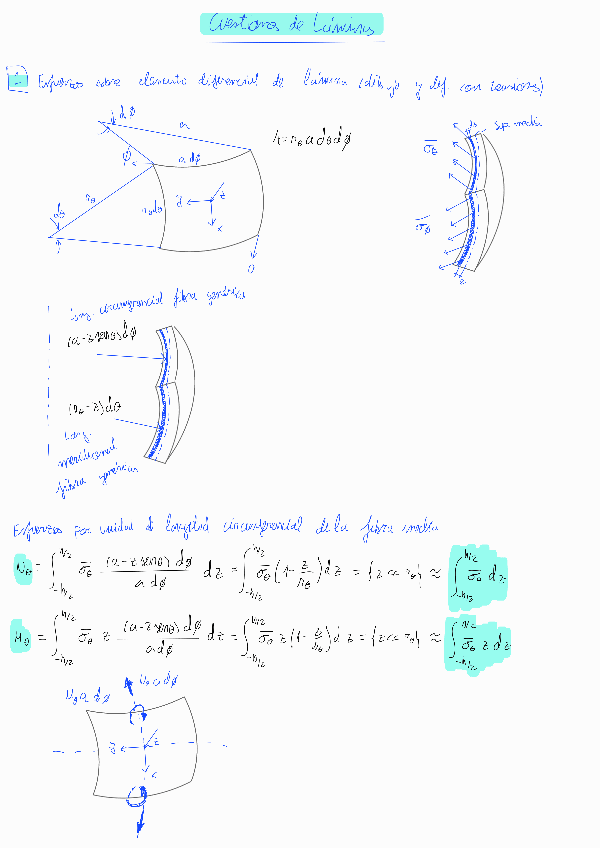 Cuestiones de Láminas
1 Esfuerzos sobre elemento diferencial de lámina (dibujo y def. con tensiones)
dφ
a
A = r_θ a dθ dφ
Sup. media
σ_θ
a dφ
r_θ
dθ
r_θ dθ
y
z
x
σ_φ
z
Long. circunferencial fibra genérica
(a - z senθ) dφ
(r_θ - z) dθ
Long.
meridional
fibra genérica
Esfuerzos por unidad de longitud circunferencial de la fibra media
N_θ = ∫_{-h/2}^{h/2} σ_θ (a - z senθ) dφ / a dφ dz = ∫_{-h/2}^{h/2} σ_θ (1 - z/r_θ) dz = {z << r_θ} ≈ ∫_{-h/2}^{h/2} σ_θ dz
M_θ = ∫_{-h/2}^{h/2} σ_θ z (a - z senθ) dφ / a dφ dz = ∫_{-h/2}^{h/2} σ_θ z (1 - z/r_θ) dz = {z << r_θ} ≈ ∫_{-h/2}^{h/2} σ_θ z dz
N_θ a dφ
M_θ a dφ
y
z
x